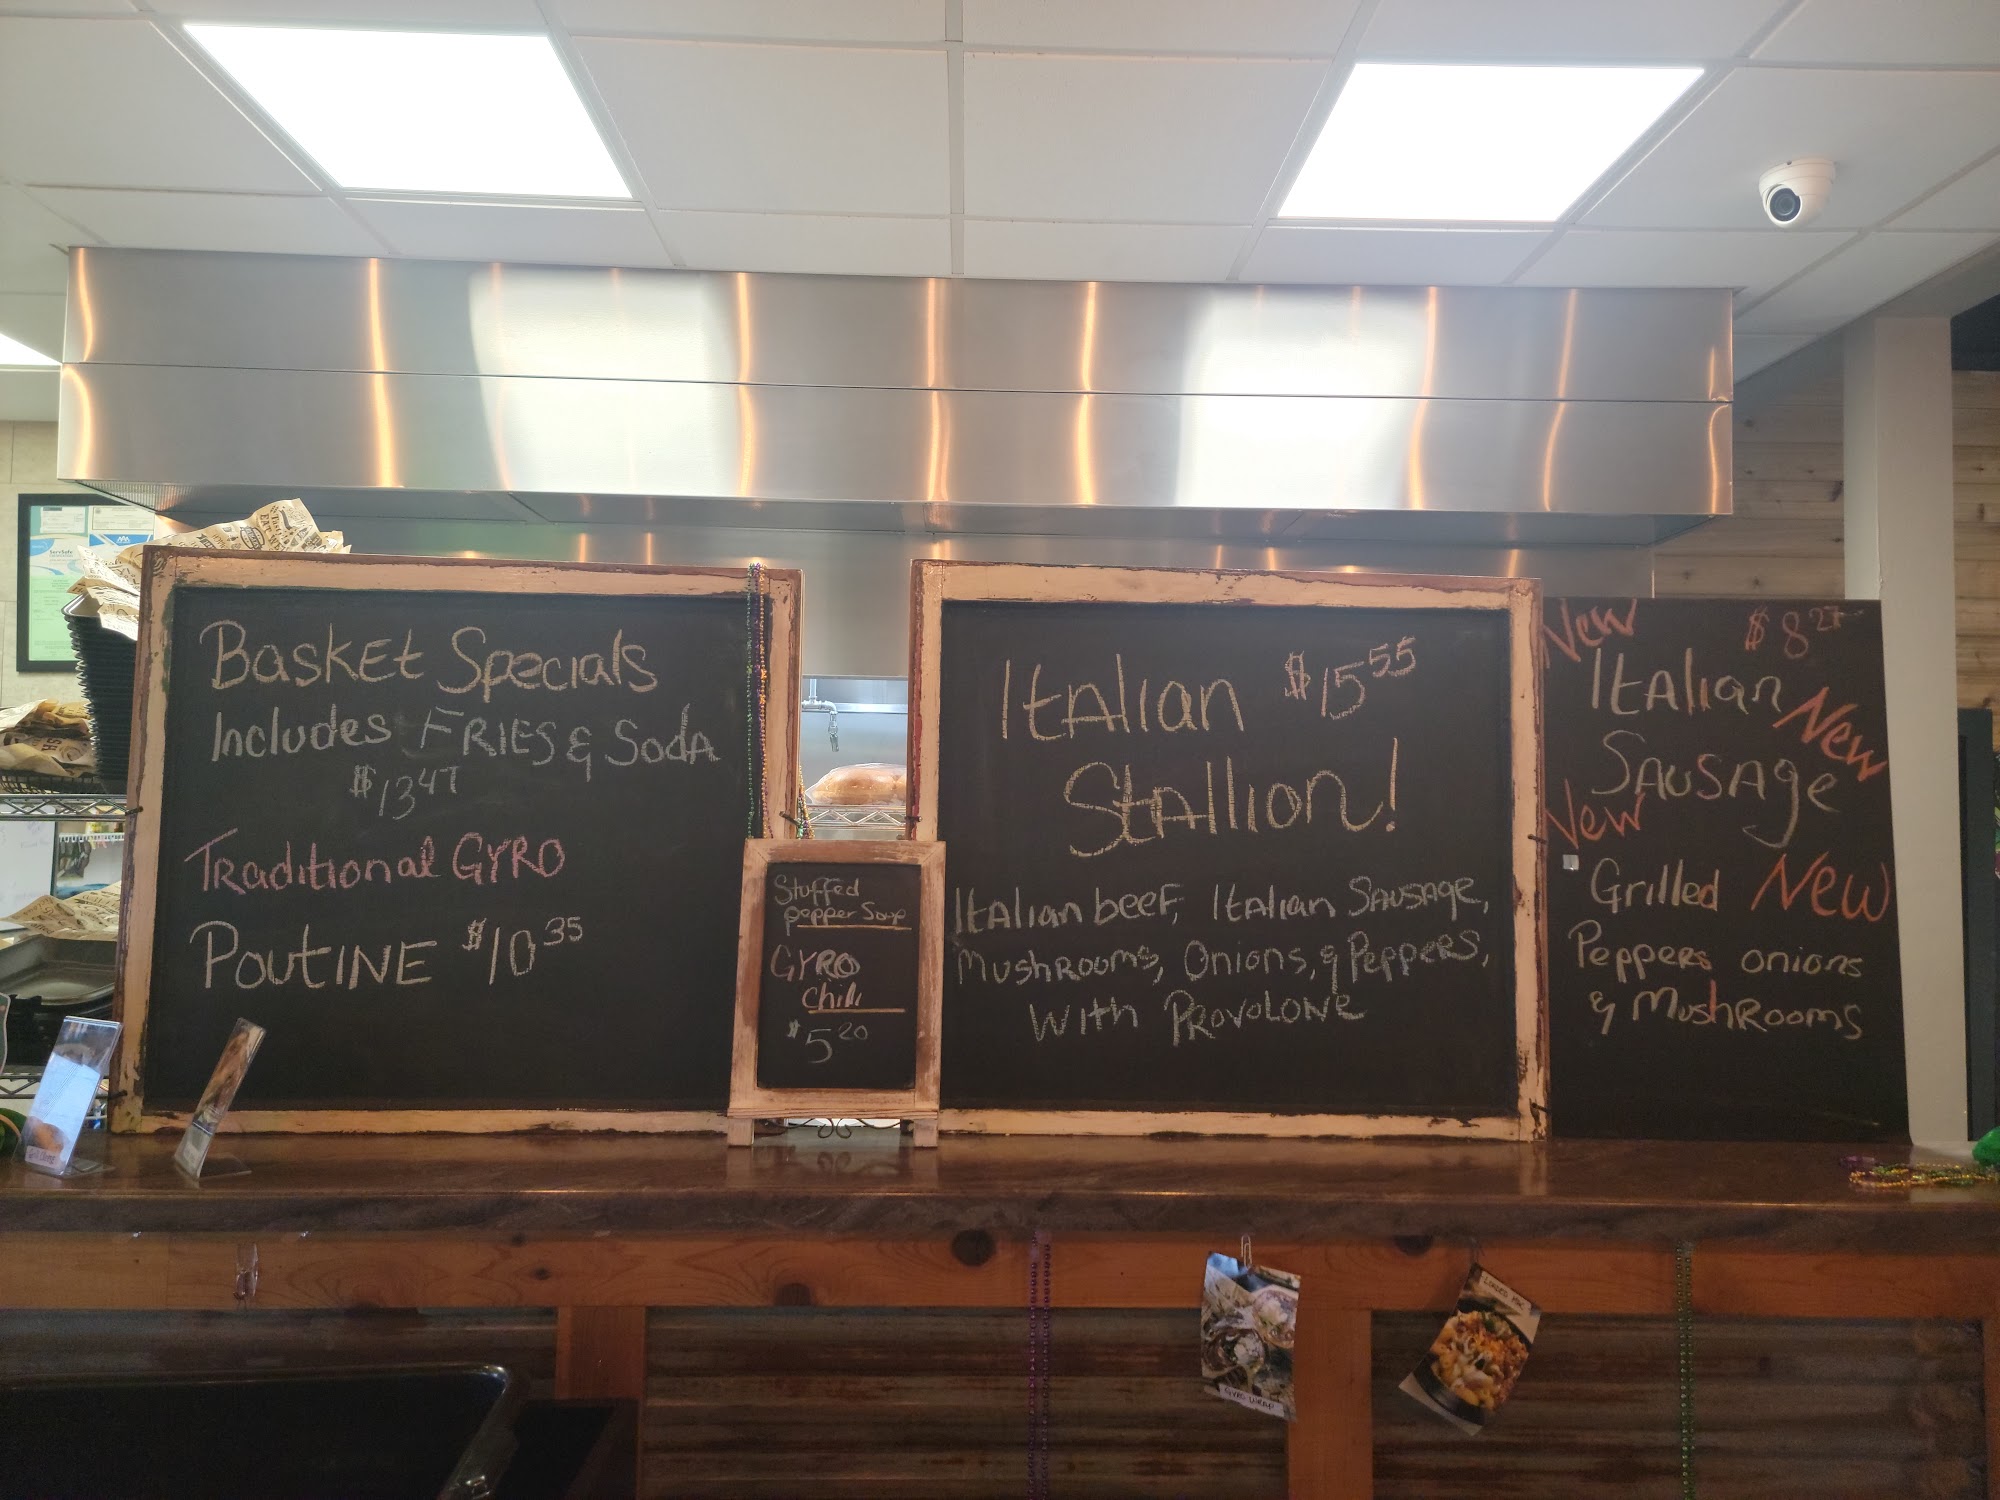 Basket Specials
Includes FRIES & Soda
$13.47
Traditional GYRO
Poutine $10.35
Stuffed
pepper Soup
GYRO
Chili
$5.20
Italian $15.55
Stallion!
Italian beef, Italian Sausage,
Mushrooms, Onions, & Peppers,
With Provolone
New $8.27
Italian
New
Sausage
New
Grilled New
Peppers onions
& Mushrooms
ServSafe
GYRO WRAP